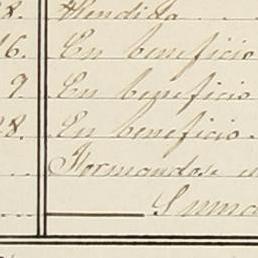 8. Atendido
16. En beneficio
9 En beneficio
28. En beneficio.
Formandose
Suma